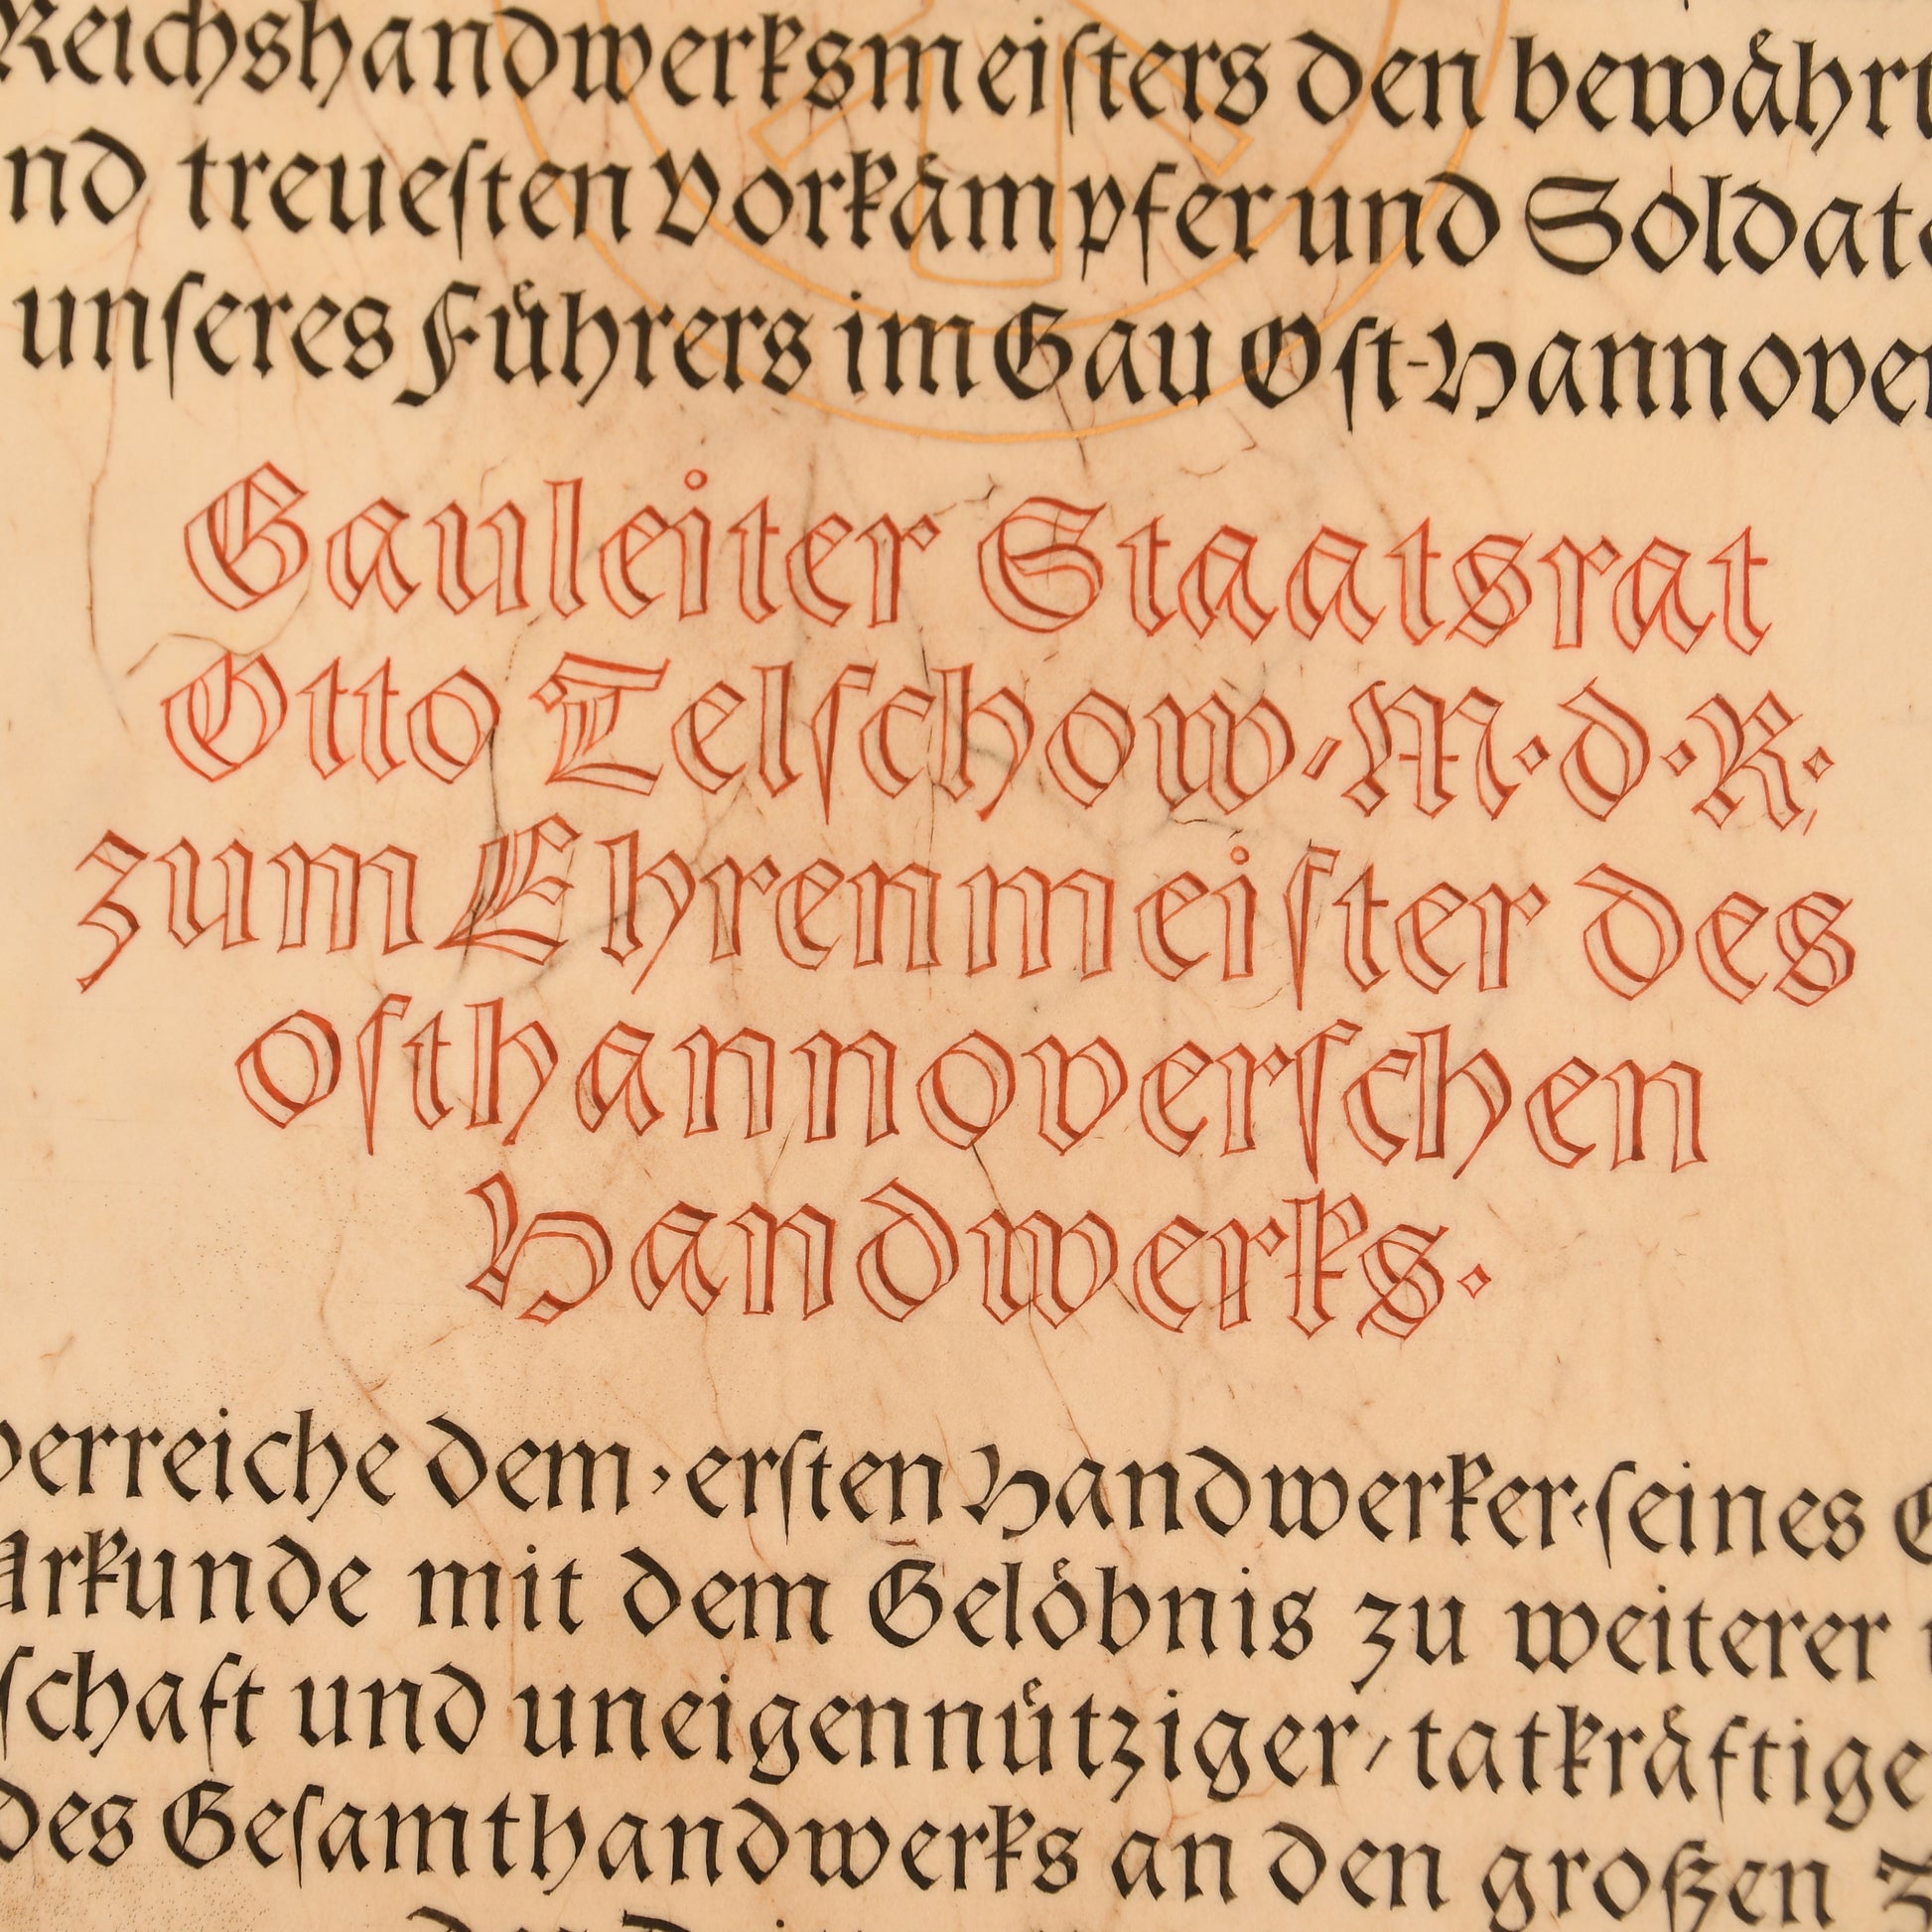 Reichshandwerksmeiſters den bewährt
nd treueſten Vorkämpfer und Soldate
unſeres Führers im Gau Oſt-Hannover
Gauleiter Staatsrat
Otto Telſchow, M·d·R·,
zum Ehrenmeiſter des
oſthannoverſchen
Handwerks.
berreiche dem, erſten Handwerker, ſeines G
Urkunde mit dem Gelöbnis zu weiterer
ſchaft und uneigennütziger, tatkräftige
des Geſamthandwerks an den großen